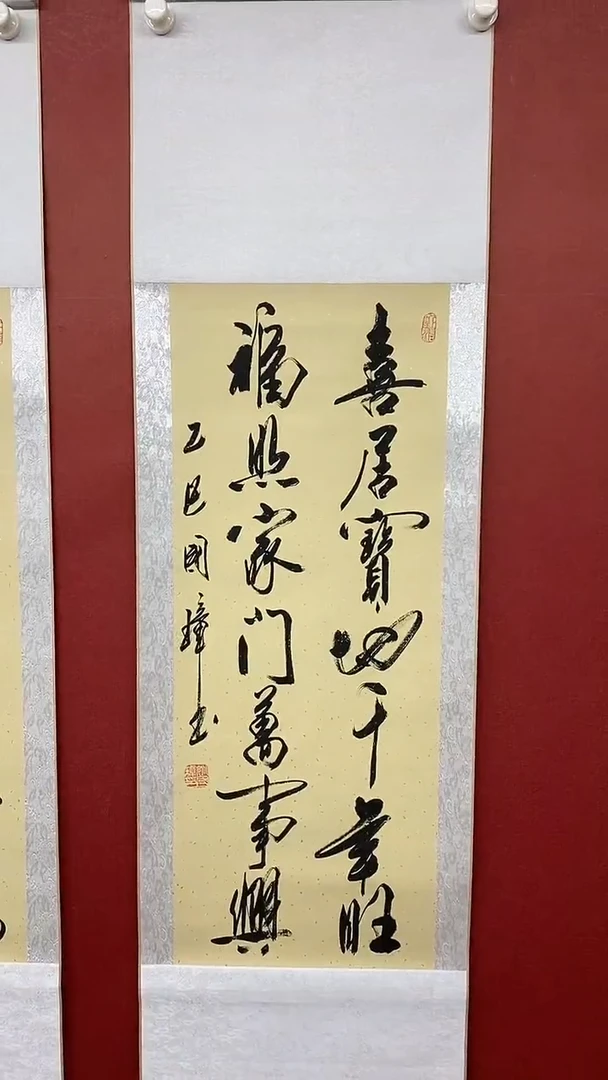 喜居寶地千年旺
福照家门萬事興
乙巳國璋书